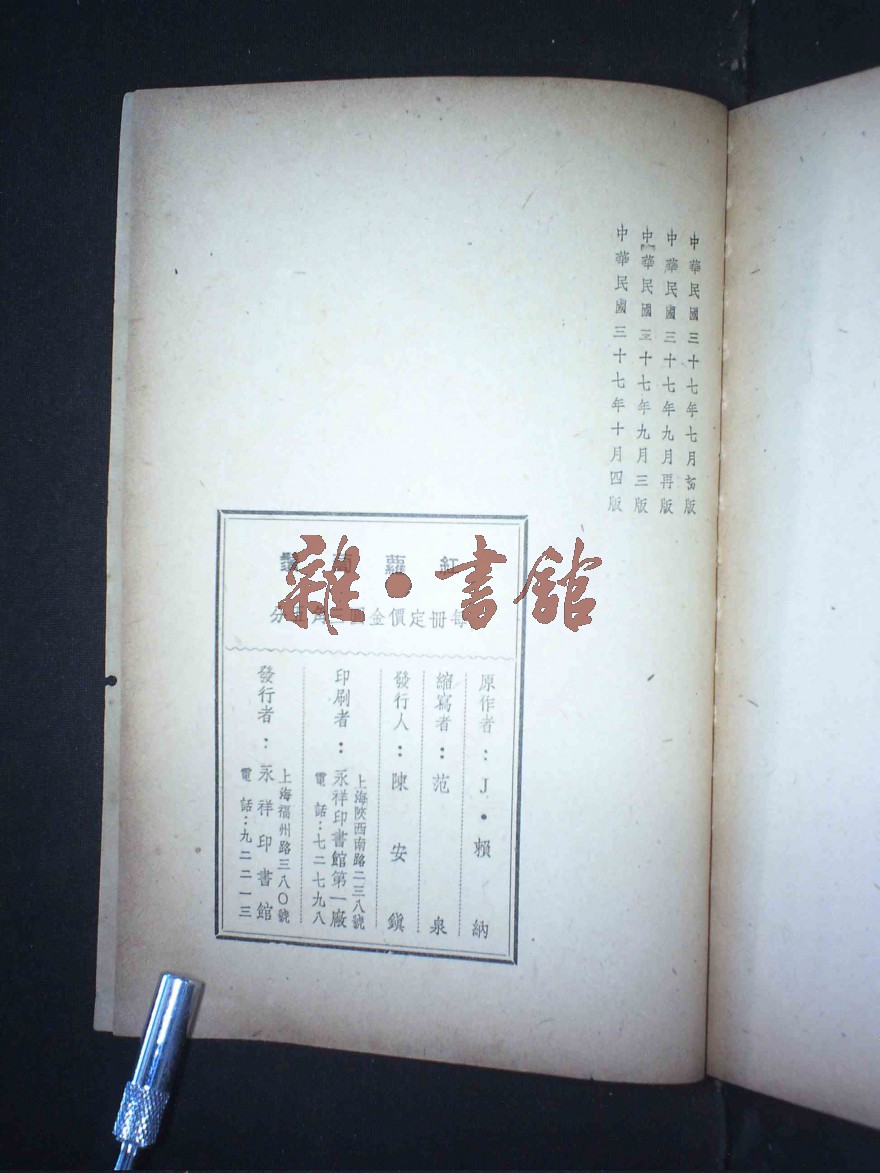 中華民國三十七年七月初版
中華民國三十七年九月再版
中華民國三十七年九月三版
中華民國三十七年十月四版
紅蘿蔔鬚
每冊定價金圓二角五分
雜·書館
原作者：J·賴納
縮寫者：范泉
發行人：陳安鎮
上海陝西南路二三八號
印刷者：永祥印書館第一廠
電話：七二七九八
上海福州路三八〇號
發行者：永祥印書館
電話：九二二一三